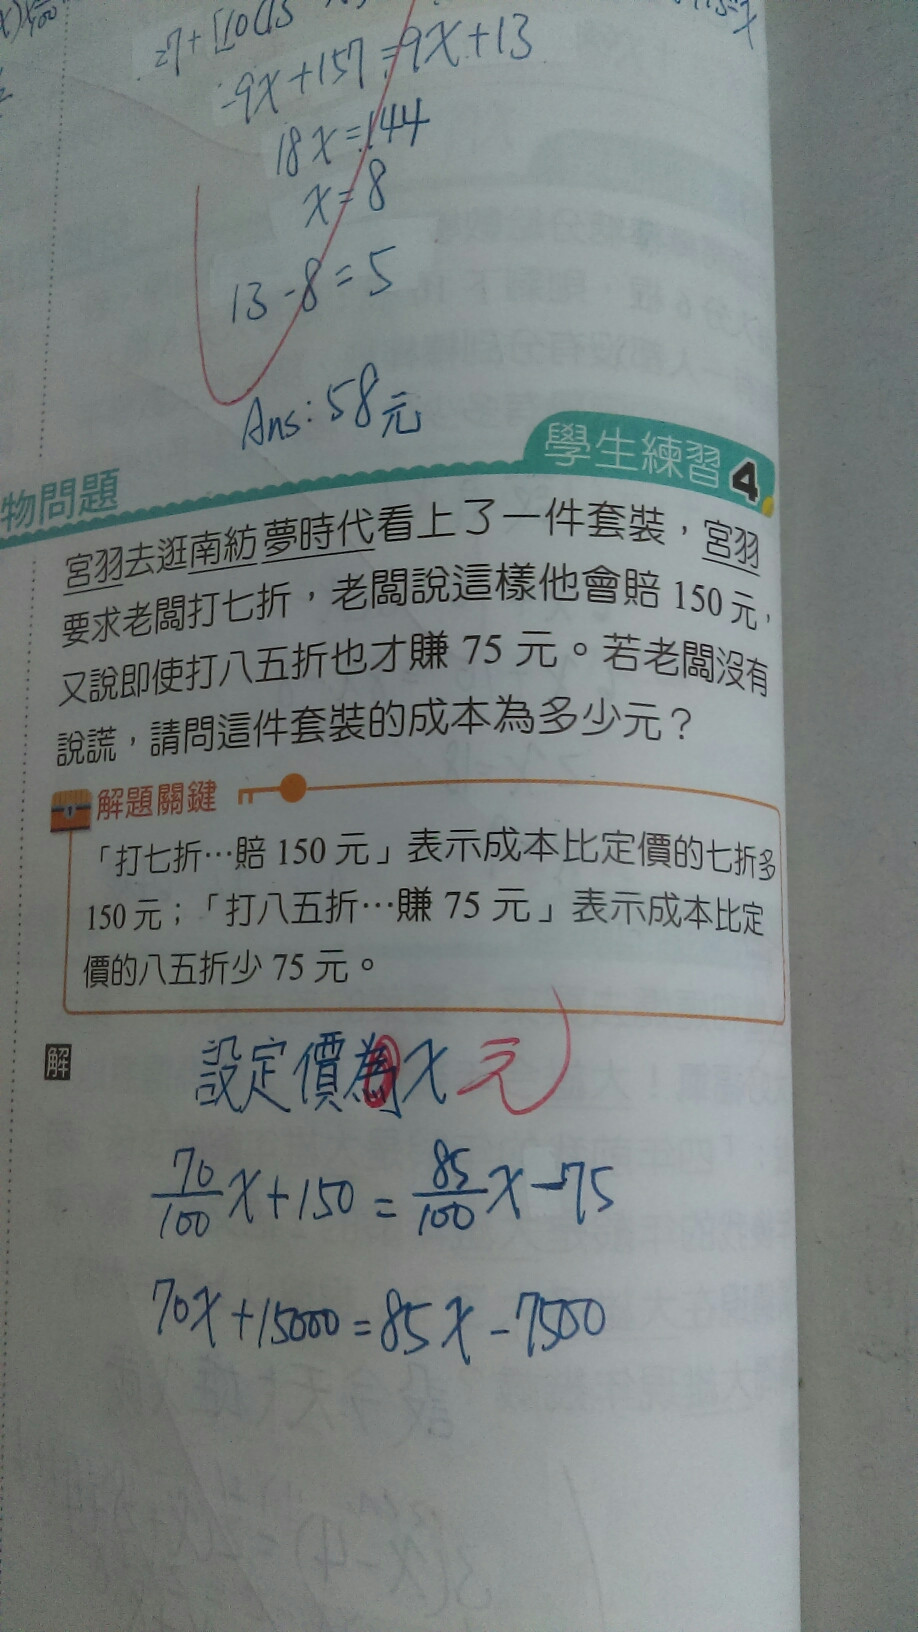 -9x+157=9x+13
18x=144
x=8
13-8=5
Ans:58元
物問題
學生練習4
宮羽去逛南紡夢時代看上了一件套裝，宮羽
要求老闆打七折，老闆說這樣他會賠 150 元，
又說即使打八五折也才賺 75 元。若老闆沒有
說謊，請問這件套裝的成本為多少元？
解題關鍵
「打七折…賠 150 元」表示成本比定價的七折多
150 元；「打八五折…賺 75 元」表示成本比定
價的八五折少 75 元。
解
設定價為x元
70/100 x+150=85/100 x-75
70x+15000=85x-7500